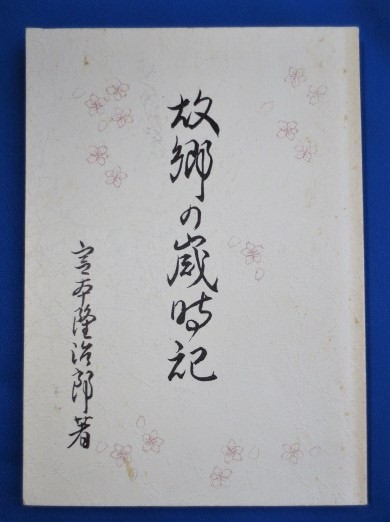 故郷の歳時記
宮本隆治郎著